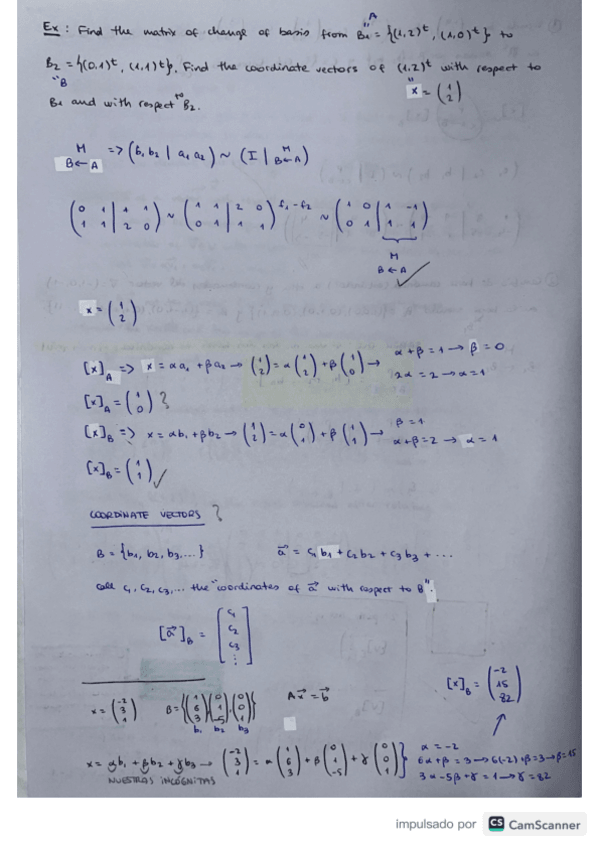 A
Ex: Find the matrix of change of basis from B1 = {(1,2)^t, (1,0)^t} to
"B
B2 = {(0,1)^t, (1,1)^t}, Find the coordinate vectors of (1,2)^t with respect to
B1 and with respect to B2.
x = (1 2)
M B←A => (b1 b2 | a1 a2) ~ (I | M B←A)
(0 1 | 1 1
1 1 | 2 0) ~ (1 1 | 2 0
0 1 | 1 1) f1-f2 ~ (1 0 | 1 -1
0 1 | 1 1)
M
B←A ✓
x = (1 2)
[x]A => x = αa1 + βa2 → (1 2) = α(1 2) + β(1 0) → α+β=1 → β=0
2α=2 → α=1
[x]A = (1 0) ?
[x]B => x = αb1 + βb2 → (1 2) = α(0 1) + β(1 1) → β=1
α+β=2 → α=1
[x]B = (1 1) ✓
COORDINATE VECTORS ?
B = {b1, b2, b3, ...} a⃗ = c1 b1 + c2 b2 + c3 b3 + ...
call c1, c2, c3, ... the "coordinates of a⃗ with respect to B".
[a⃗]B = [c1 c2 c3 ⋮]
x = (-2 3 1) B = {(1 6 3) (0 1 -5) (0 0 1)} Ax⃗ = b⃗
b1 b2 b3
[x]B = (-2 15 82)
x = αb1 + βb2 + γb3 → (-2 3 1) = α(1 6 3) + β(0 1 -5) + γ(0 0 1)} α = -2
NUESTRAS INCÓGNITAS
6α+β = 3 → 6(-2)+β=3 → β=15
3α-5β+γ = 1 → γ=82
impulsado por CS CamScanner